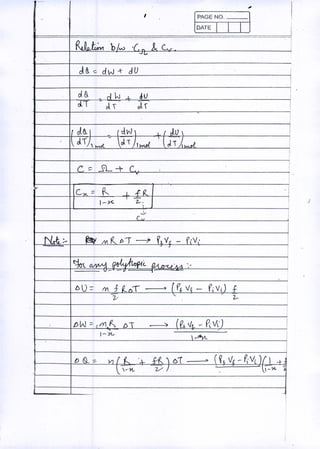 PAGE NO.
DATE
Relation b/w C_Ω & C_v.
dQ = dW + dU
dQ/dT = dW/dT + dU/dT
(dQ/dT)_1mol = (dW/dT)_1mol + (dU/dT)_1mol
C = Ω + C_v
C_x = R/(1-x) + fR/2
↓
C_v
Note:- nRΔT → P_f V_f - P_i V_i
for any polytropic process :-
ΔU = n f/2 RΔT → (P_f V_f - P_i V_i) f/2
ΔW = nR/(1-x) ΔT → (P_f V_f - P_i V_i)/(1-x)
ΔQ = n(R/(1-x) + fR/2) ΔT → (P_f V_f - P_i V_i)(1/(1-x) + f/2